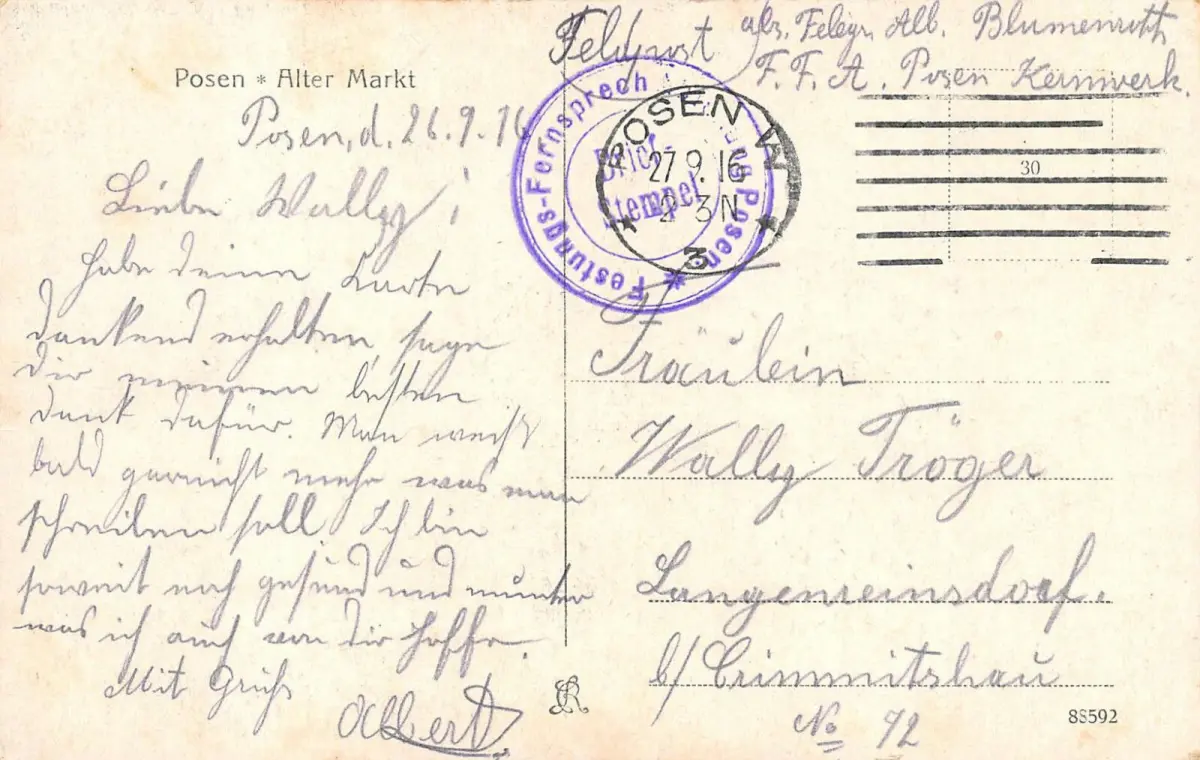 Posen * Alter Markt
Posen, d. 26.9.16
Liebe Wally!
Habe deine Karte
dankend erhalten, sage
dir meinen besten
Dank dafür. Man weist
bald garnicht mehr was man
schreiben soll. Ich bin
soweit noch gesund und munter
was ich auch von dir hoffe.
Mit Gruß
Albert
Feldpost
Alb. Blumenroth
F. F. A. Posen Kernwerk.
Festungs-Fernsprech Posen *
Brief-
Stempel
POSEN W
27.9.16
2-3N
* 3 *
30
Fräulein
Wally Tröger
Langenreinsdorf.
b/ Crimmitshau
No 72
88592